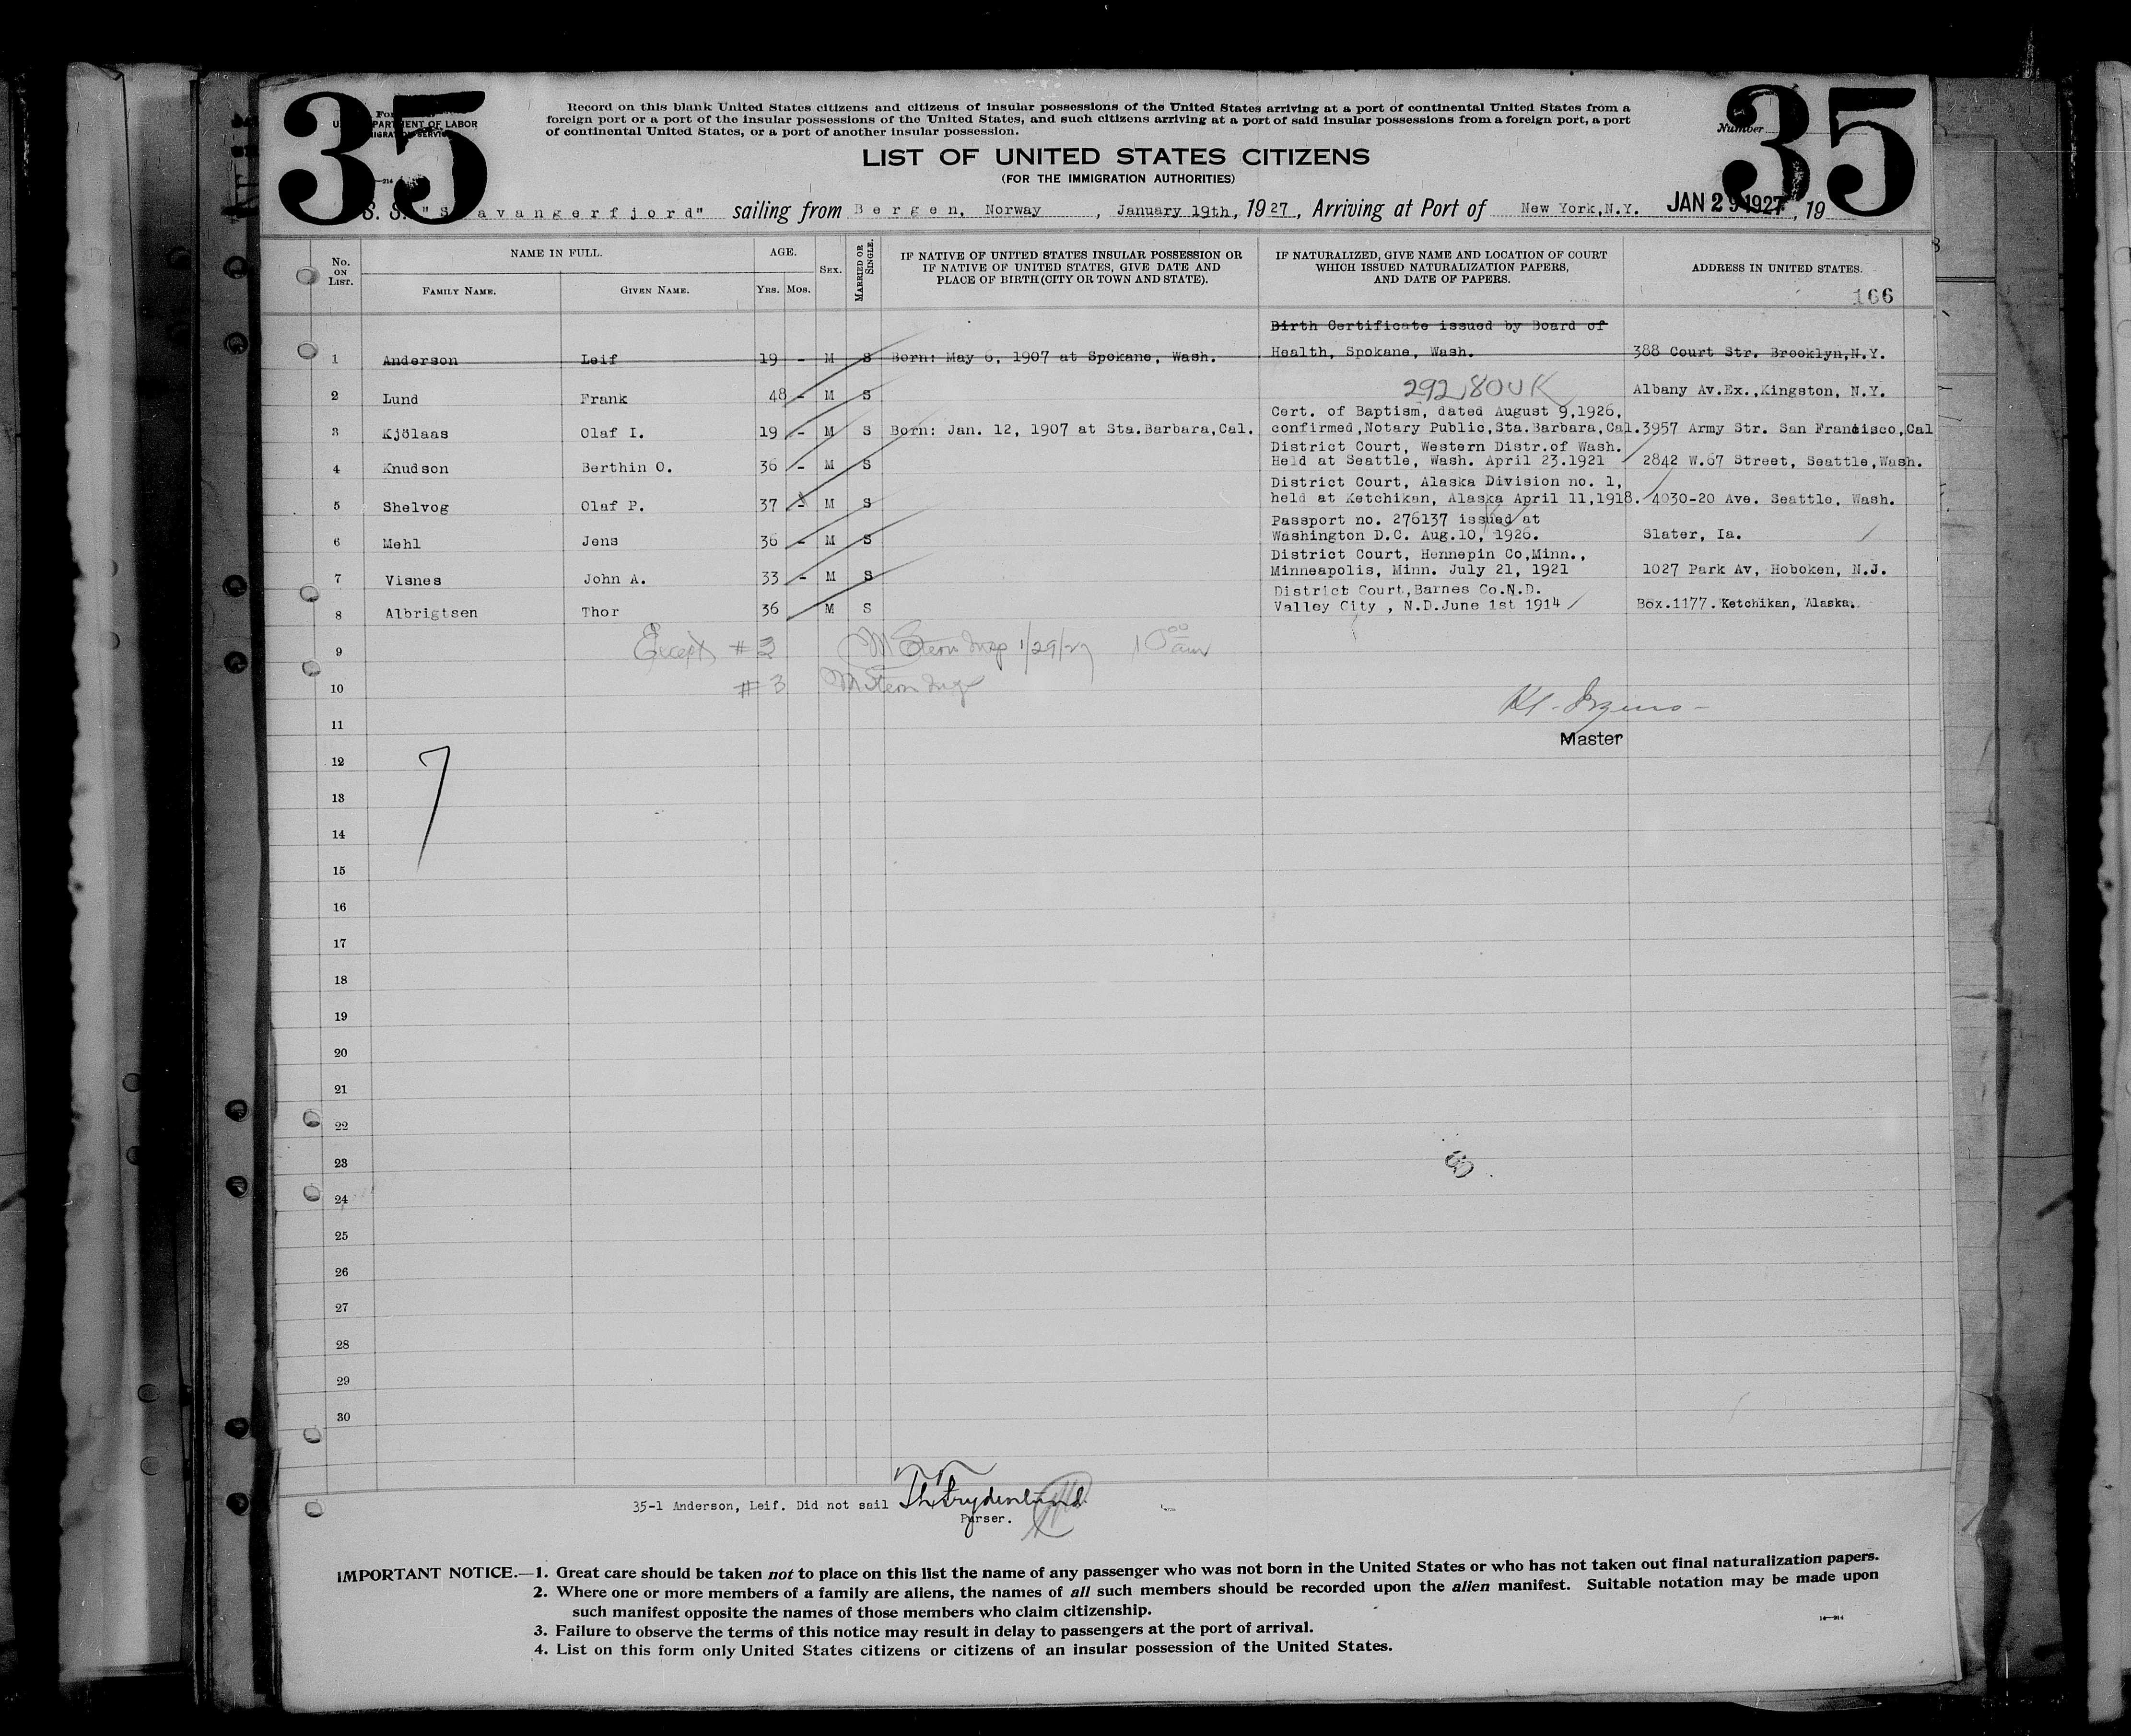 35
35
Record on this blank United States citizens and citizens of insular possessions of the United States arriving at a port of continental United States from a
foreign port or a port of the insular possessions of the United States, and such citizens arriving at a port of said insular possessions from a foreign port, a port
of continental United States, or a port of another insular possession.
Number
LIST OF UNITED STATES CITIZENS
(FOR THE IMMIGRATION AUTHORITIES)
S. S. "Stavangerfjord" sailing from Bergen, Norway, January 19th, 1927, Arriving at Port of New York, N.Y. JAN 29 1927, 19
No. ON LIST.
NAME IN FULL.
FAMILY NAME.
GIVEN NAME.
AGE.
YRS. MOS.
SEX.
MARRIED OR SINGLE.
IF NATIVE OF UNITED STATES INSULAR POSSESSION OR
IF NATIVE OF UNITED STATES, GIVE DATE AND
PLACE OF BIRTH (CITY OR TOWN AND STATE).
IF NATURALIZED, GIVE NAME AND LOCATION OF COURT
WHICH ISSUED NATURALIZATION PAPERS,
AND DATE OF PAPERS.
ADDRESS IN UNITED STATES.
166
Birth Certificate issued by Board of
1 Anderson Leif 19 - M S Born: May 6, 1907 at Spokane, Wash. Health, Spokane, Wash. 388 Court Str. Brooklyn,N.Y.
2 Lund Frank 48 - M S 292180 Albany Av.Ex.,Kingston, N.Y.
Cert. of Baptism, dated August 9,1926,
3 Kjölaas Olaf I. 19 - M S Born: Jan. 12, 1907 at Sta.Barbara,Cal. confirmed,Notary Public,Sta.Barbara,Cal. 3957 Army Str. San Francisco,Cal
District Court, Western Distr.of Wash.
4 Knudson Berthin O. 36 - M S Held at Seattle, Wash. April 23.1921 2842 W.67 Street, Seattle,Wash.
District Court, Alaska Division no. 1,
5 Shelvog Olaf P. 37 - M S held at Ketchikan, Alaska April 11,1918. 4030-20 Ave. Seattle, Wash.
Passport no. 276137 issued at
6 Mehl Jens 36 - M S Washington D.C. Aug.10, 1926. Slater, Ia.
District Court, Hennepin Co,Minn.,
7 Visnes John A. 33 - M S Minneapolis, Minn. July 21, 1921 1027 Park Av, Hoboken, N.J.
District Court,Barnes Co.N.D.
8 Albrigtsen Thor 36 M S Valley City , N.D.June 1st 1914 Box.1177. Ketchikan, Alaska.
9 Except #3 M Stern Insp 1/29/27 10 00 am
10 #3 M Stern Insp
11
Master
12
7
13
14
15
16
17
18
19
20
21
22
23
24
25
26
27
28
29
30
35-1 Anderson, Leif. Did not sail Th. Frydenlund
Purser.
IMPORTANT NOTICE.—1. Great care should be taken not to place on this list the name of any passenger who was not born in the United States or who has not taken out final naturalization papers.
2. Where one or more members of a family are aliens, the names of all such members should be recorded upon the alien manifest. Suitable notation may be made upon
such manifest opposite the names of those members who claim citizenship.
3. Failure to observe the terms of this notice may result in delay to passengers at the port of arrival.
4. List on this form only United States citizens or citizens of an insular possession of the United States.